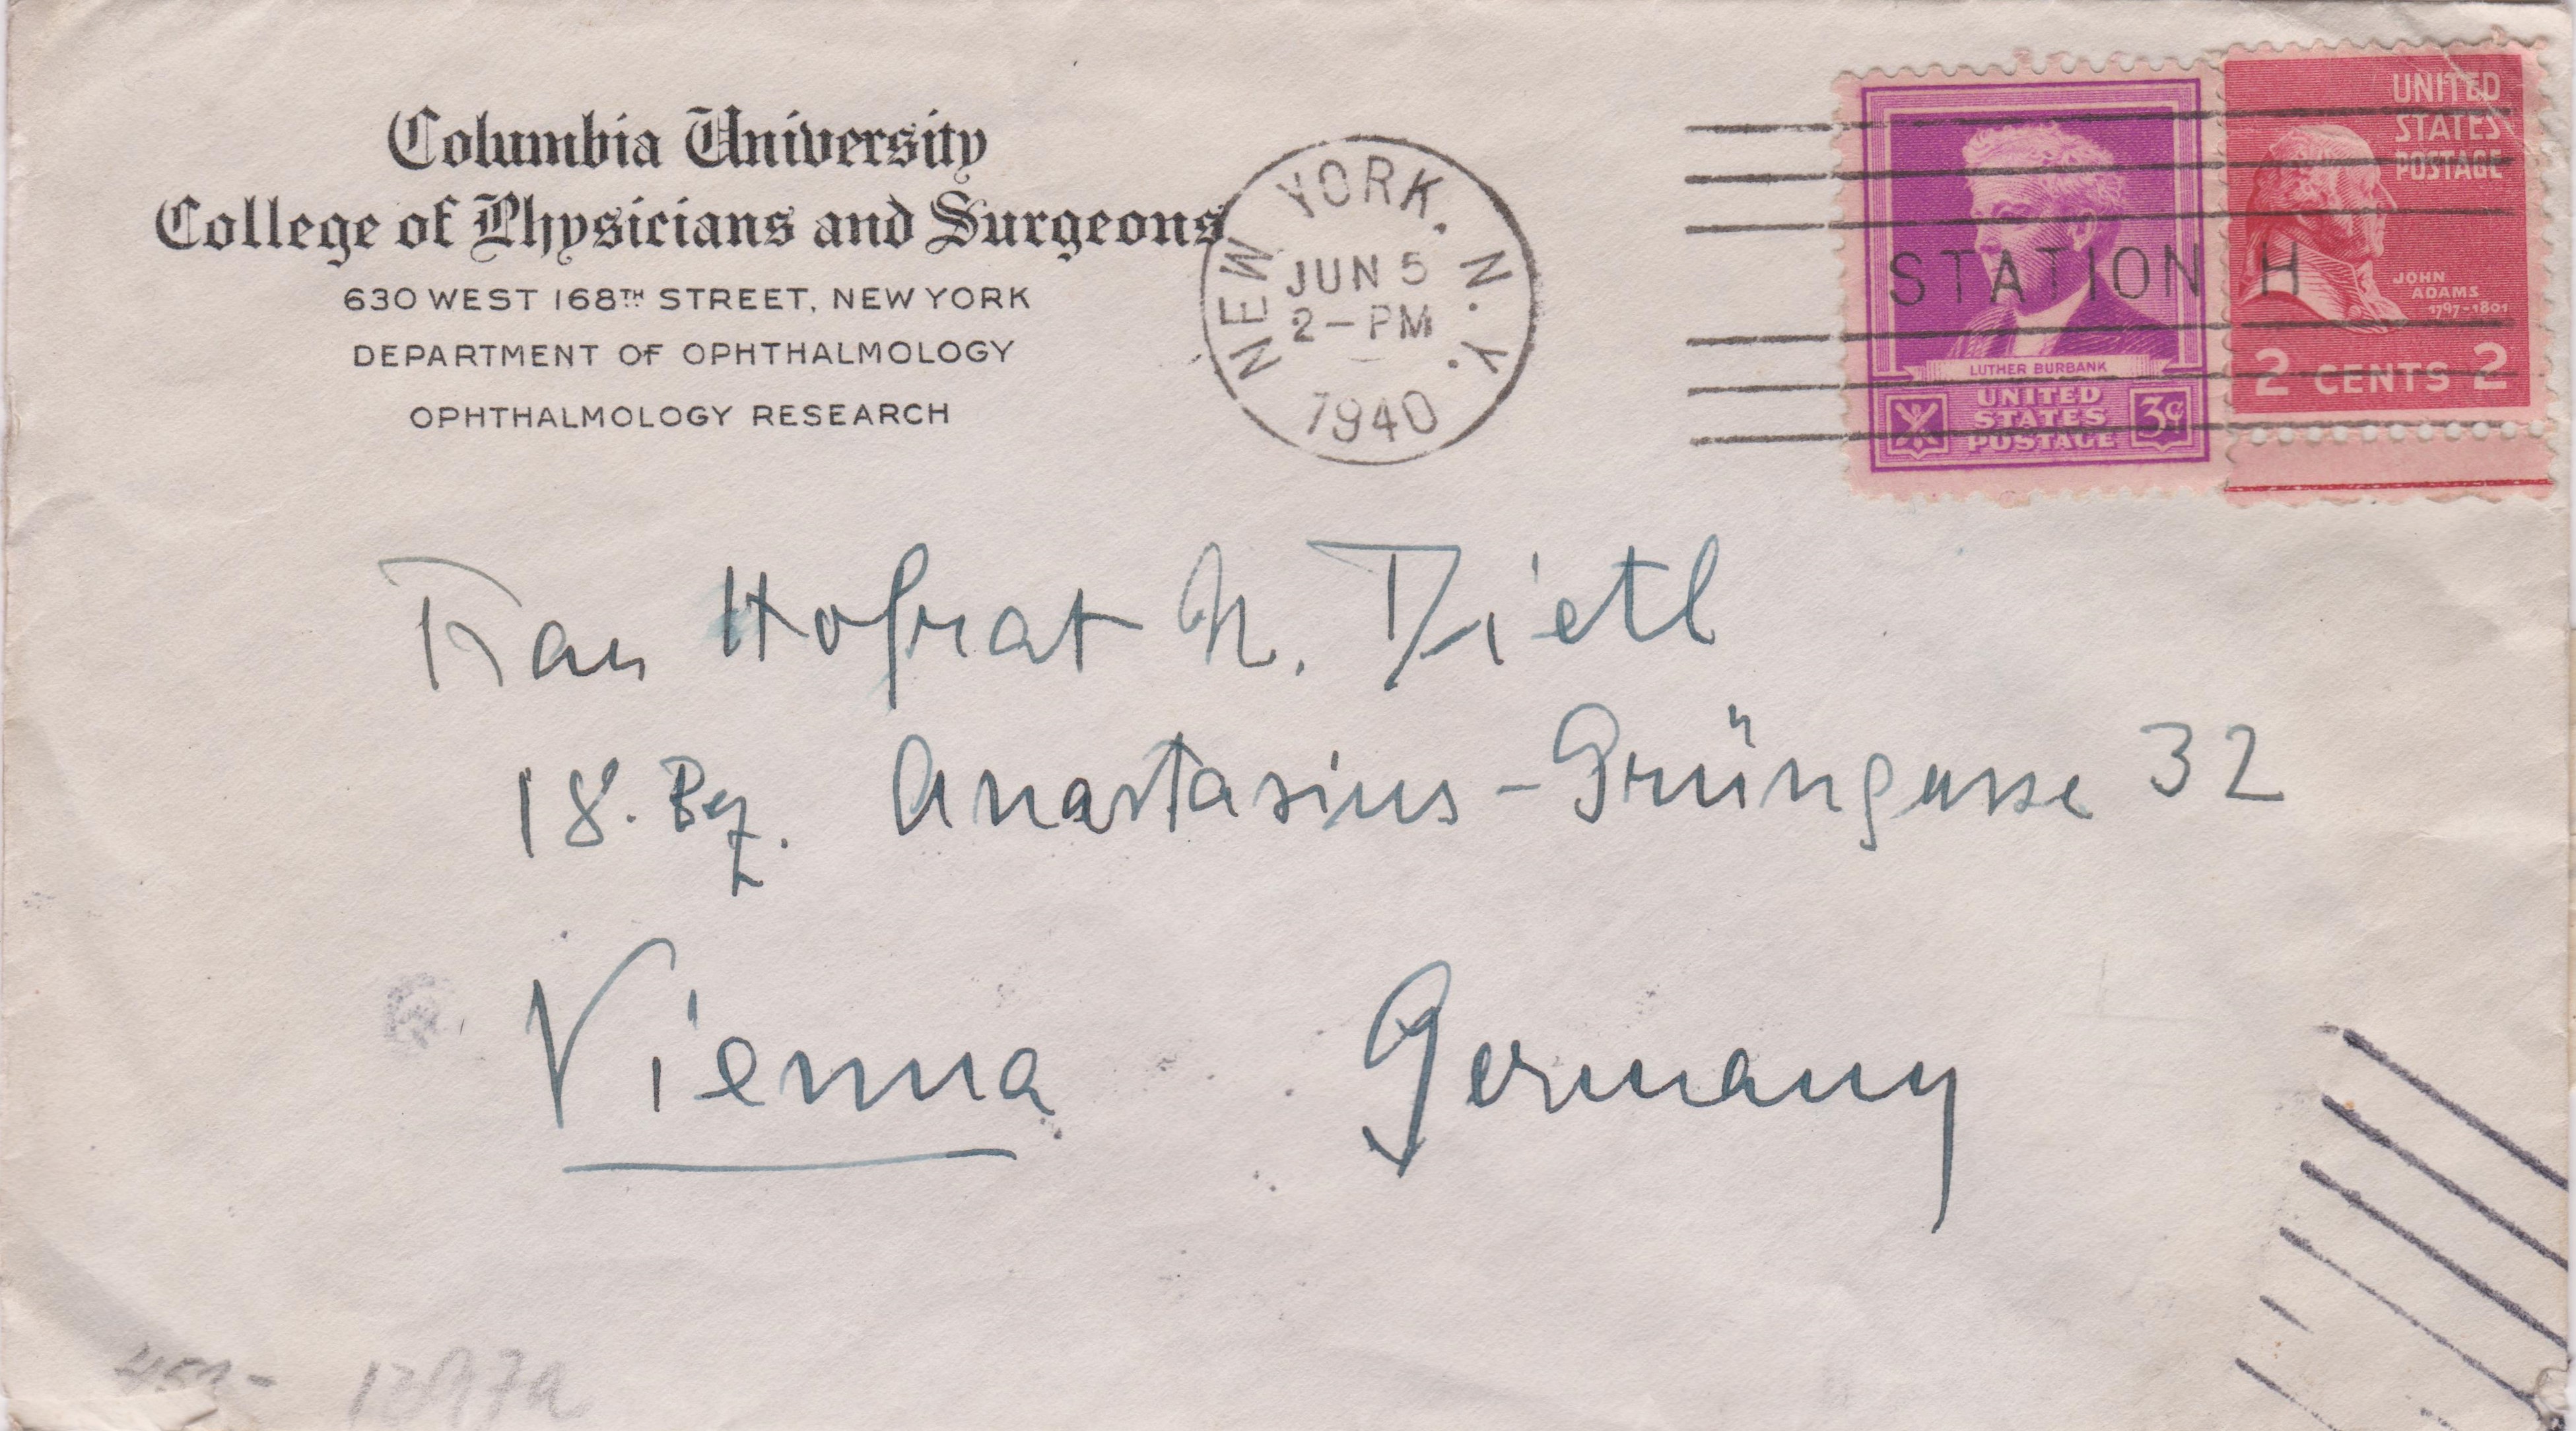 Columbia University
College of Physicians and Surgeons
630 WEST 168TH STREET, NEW YORK
DEPARTMENT OF OPHTHALMOLOGY
OPHTHALMOLOGY RESEARCH
NEW YORK, N.Y.
JUN 5
2-PM
1940
STATION H
LUTHER BURBANK
UNITED
STATES
POSTAGE
3¢
UNITED
STATES
POSTAGE
JOHN
ADAMS
1797-1801
2 CENTS 2
Frau Hofrat N. Dietl
18. Bez. Anastasius-Grüngasse 32
Vienna Germany